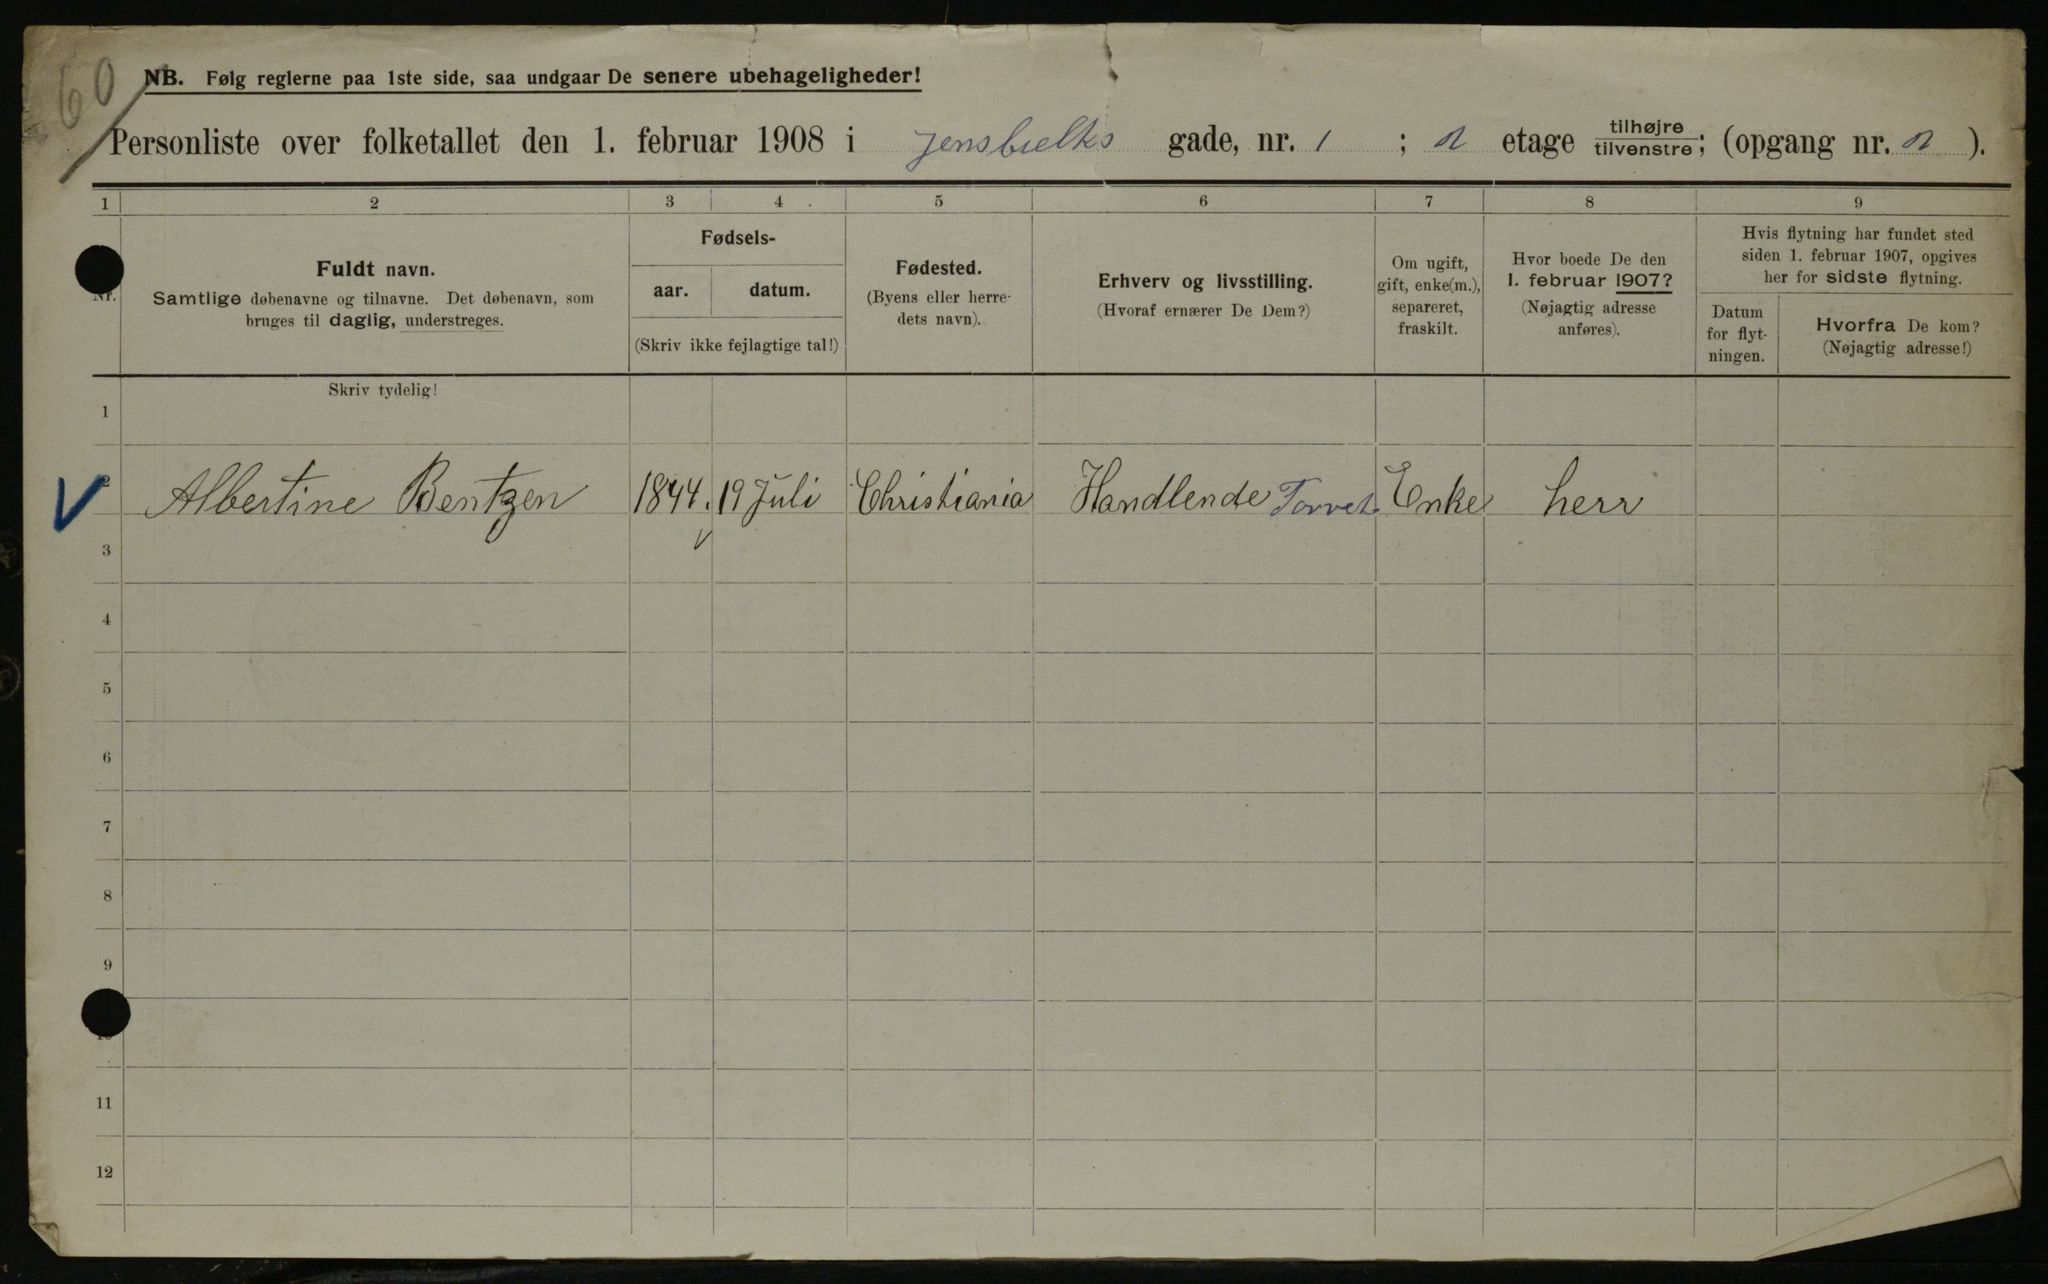 60
NB. Følg reglerne paa 1ste side, saa undgaar De senere ubehageligheder!
Personliste over folketallet den 1. februar 1908 i Jensbielks gade, nr. 1 ; 2 etage tilhøjre tilvenstre; (opgang nr. 2 ).
1 2 3 4 5 6 7 8 9
Nr.
Fuldt navn.
Samtlige døbenavne og tilnavne. Det døbenavn, som
bruges til daglig, understreges.
Fødsels-
aar. datum.
(Skriv ikke fejlagtige tal!)
Fødested.
(Byens eller herre-
dets navn).
Erhverv og livsstilling.
(Hvoraf ernærer De Dem?)
Om ugift,
gift, enke(m.),
separeret,
fraskilt.
Hvor boede De den
1. februar 1907?
(Nøjagtig adresse
anføres).
Hvis flytning har fundet sted
siden 1. februar 1907, opgives
her for sidste flytning.
Datum
for flyt-
ningen.
Hvorfra De kom?
(Nøjagtig adresse!)
Skriv tydelig!
1
2 Albertine Bentzen 1844. 19 Juli Christiania Handlende Torvet Enke herr
3
4
5
6
7
8
9
10
11
12